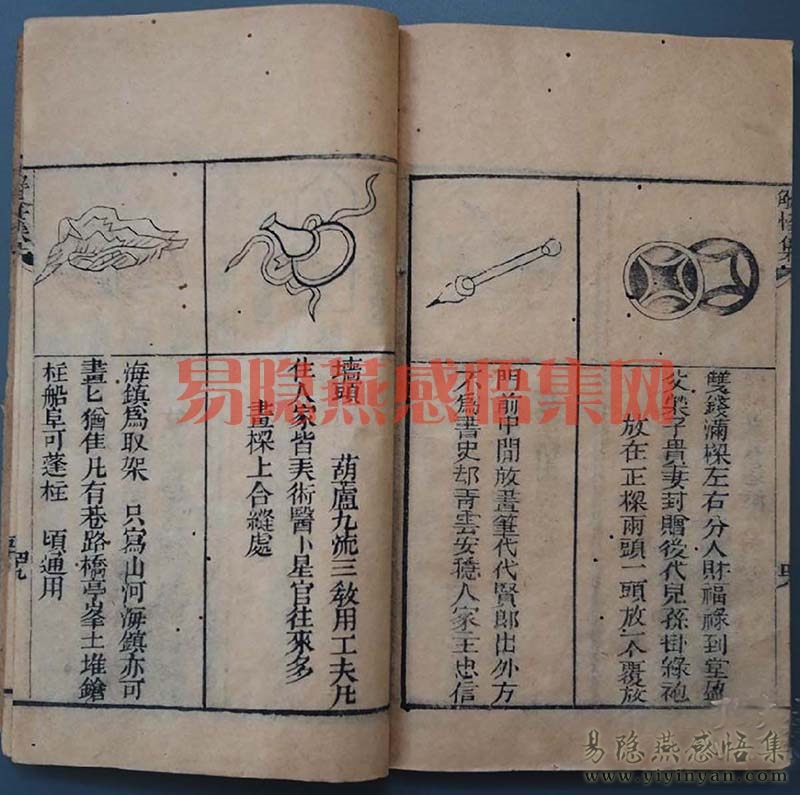 雙錢滿樑左右分人財福祿到堂盈
父榮子貴妻封贈後代兒孫掛綠袍
放在正樑兩頭一頭放一个不覆放
門前中間放畫筆代代賢郎出外方
不爲書史却青雲安穩人家主忠信
墻頭 葫蘆九流三教用工夫凡
住人家皆美術醫卜星官往來多
畫樑上合縫處
海鎮爲取架 只寫山河海鎮亦可
畫匕猶佳凡有巷路橋亭峯土堆鎗
柱船阜可蓬柱 頃通用
易隐燕感悟集网
易隐燕感悟集
www.yiyinyan.com